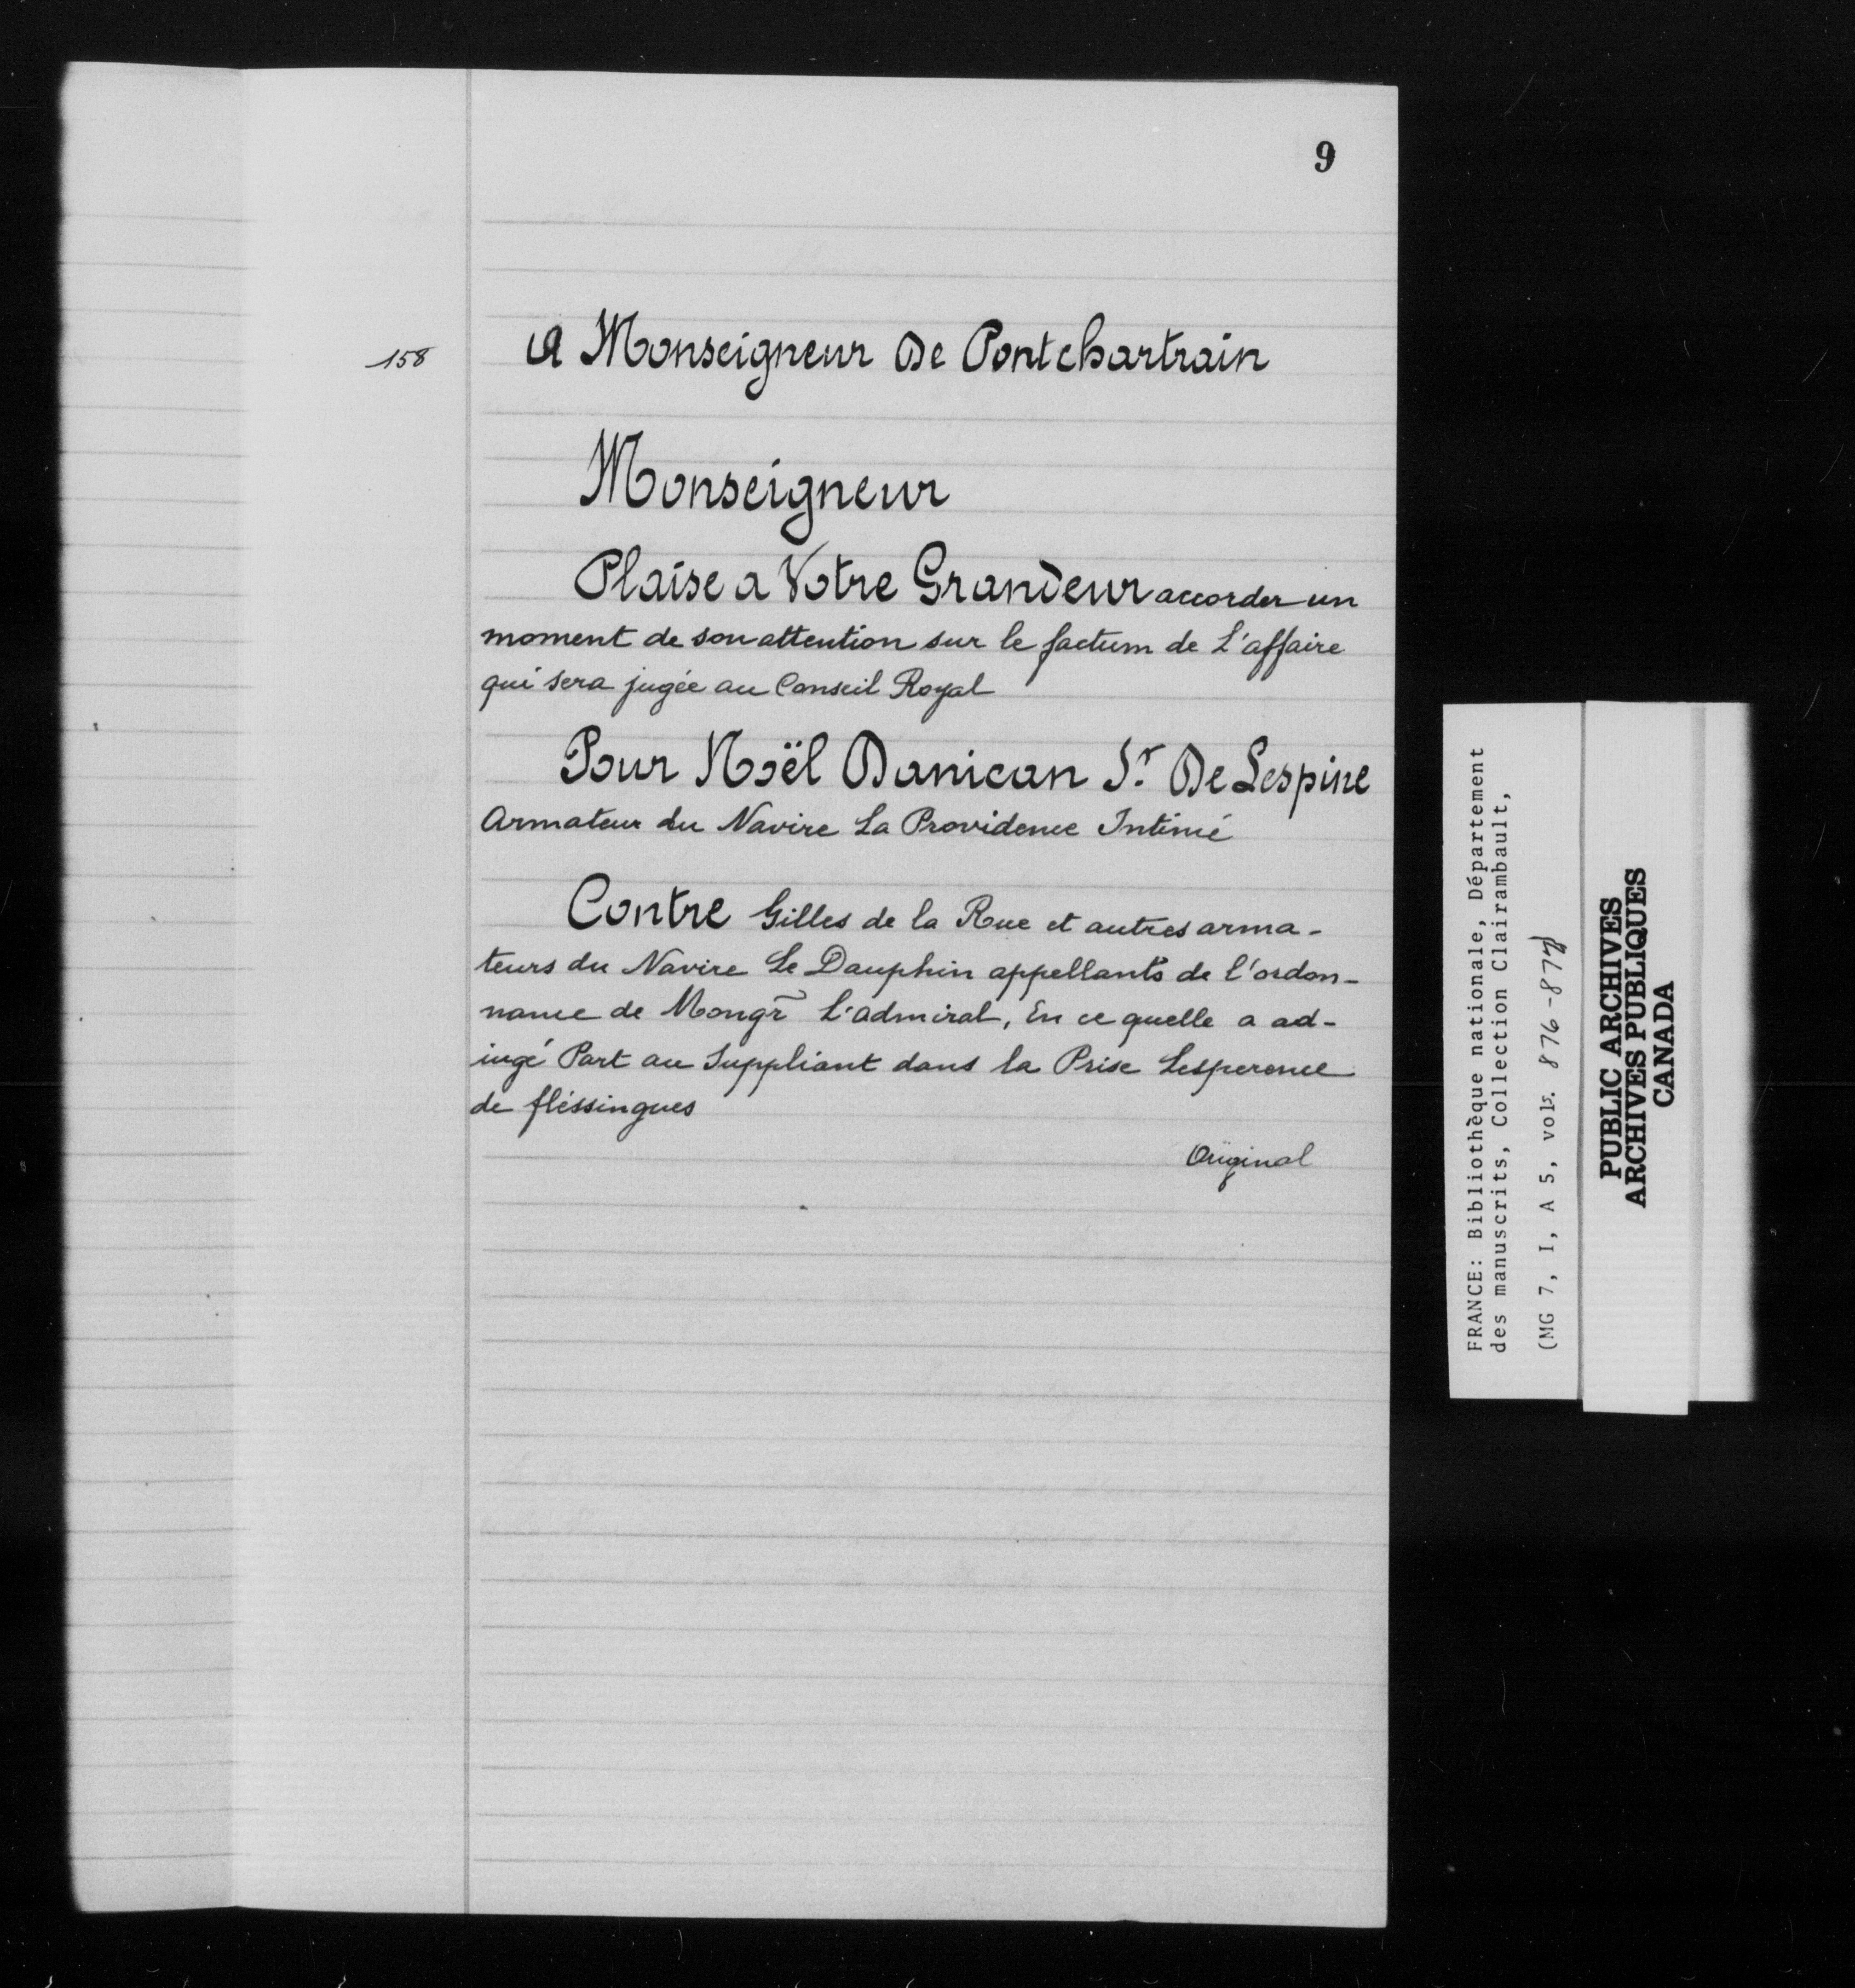 9
158
A Monseigneur De Pontchartrain
Monseigneur
Plaise a Votre Grandeur accorder un
moment de son attention sur le factum de L'affaire
qui sera jugée au Conseil Royal
Pour Noël Danican Sr. De Lespine
Armateur du Navire La Providence Intimé
Contre Gilles de la Rue et autres arma-
teurs du Navire Le Dauphin appellants de l'ordon-
nance de Mongr̃ L'admiral, En ce quelle a ad-
iugé Part au Suppliant dans la Prise Lesperence
de fléssingues
Original
FRANCE: Bibliothèque nationale, Département
des manuscrits, Collection Clairambault,
(MG 7, I, A 5, vols. 876-877)
PUBLIC ARCHIVES
ARCHIVES PUBLIQUES
CANADA